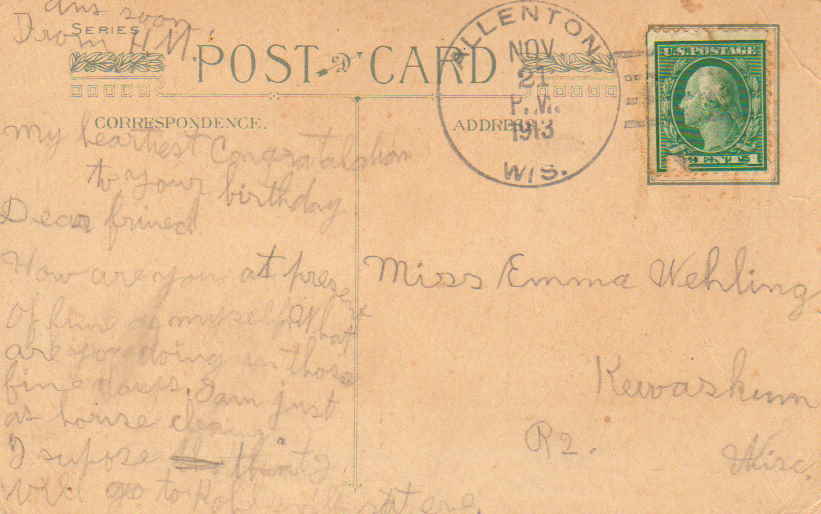 Ans soon
From H.M.
SERIES
POST CARD
ALLENTON
NOV.
21
P.M.
1913
WIS.
U.S. POSTAGE
CORRESPONDENCE.
ADDRESS
My heartiest Congratulation
to your birthday
Dear frined
How are you at present
of fine as myself. What
are you doing in those
fine days. I am just
at house cleaning
I supose that I
will go to
Miss Emma Wehling
Kewaskum
R2.
Wisc.